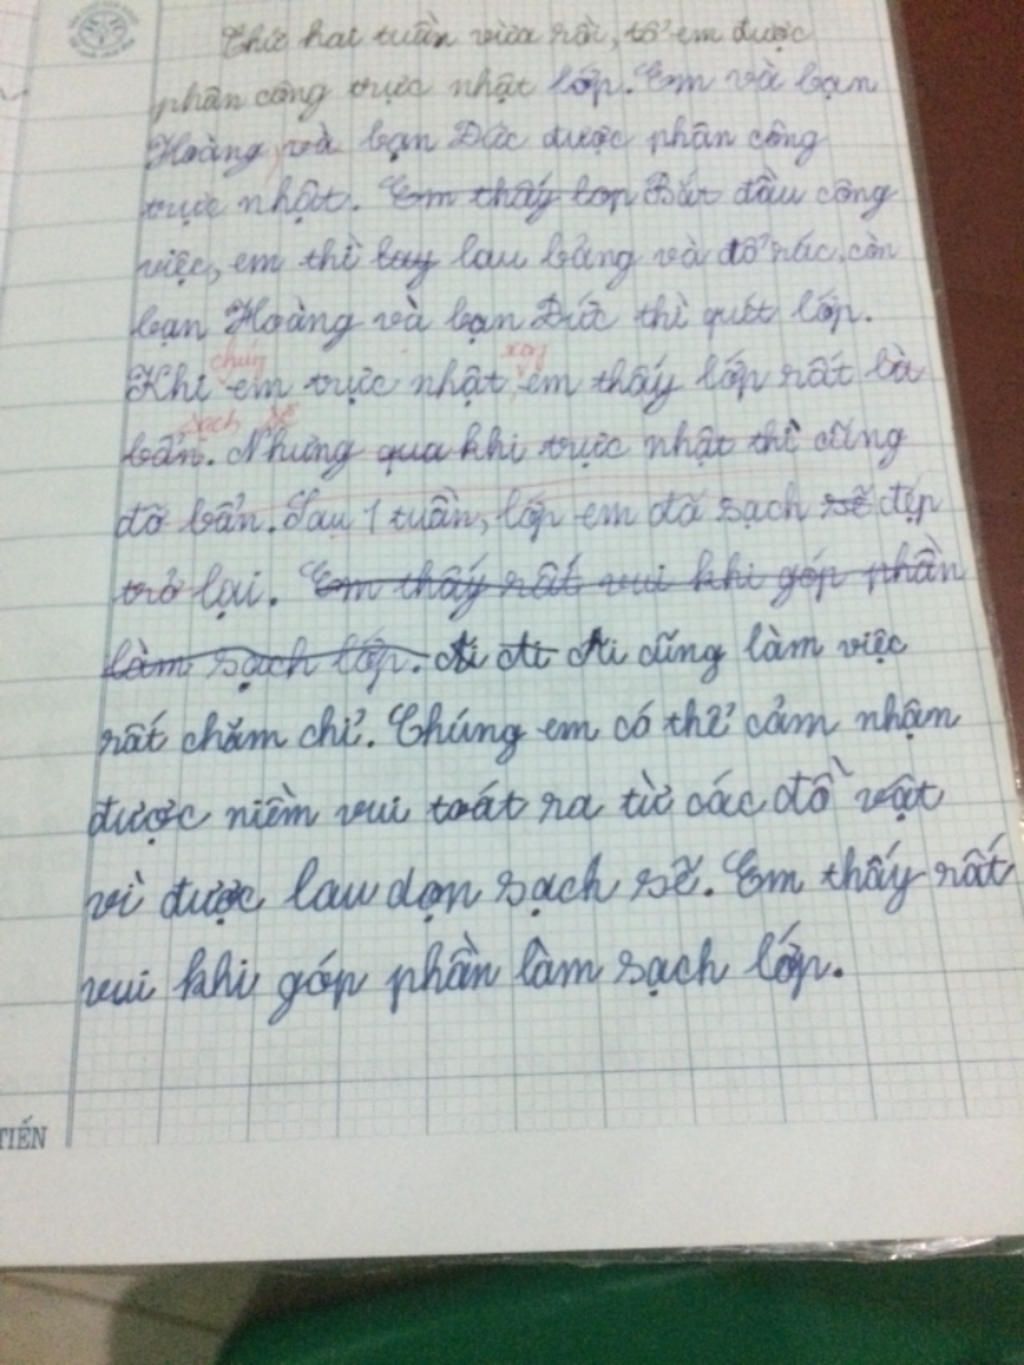 Thứ hai tuần vừa rồi, tổ em được
phân công trực nhật lớp. Em và bạn
Hoàng và bạn Đức được phân công
trực nhật. Em thấy lop Bắt đầu công
việc, em thì lay lau bảng và đổ rác, còn
bạn Hoàng và bạn Đức thì quét lớp.
chúng xong
Khi em trực nhật, em thấy lớp rất bừa
sạch sẽ
bẩn. Nhưng qua khi trực nhật thì cũng
đỡ bẩn. Sau 1 tuần, lớp em đã sạch sẽ đẹp
trở lại. Em thấy rất vui khi góp phần
làm sạch lớp. Ai Ai Ai cũng làm việc
rất chăm chỉ. Chúng em có thể cảm nhận
được niềm vui toát ra từ các đồ vật
vì được lau dọn sạch sẽ. Em thấy rất
vui khi góp phần làm sạch lớp.
TIẾN